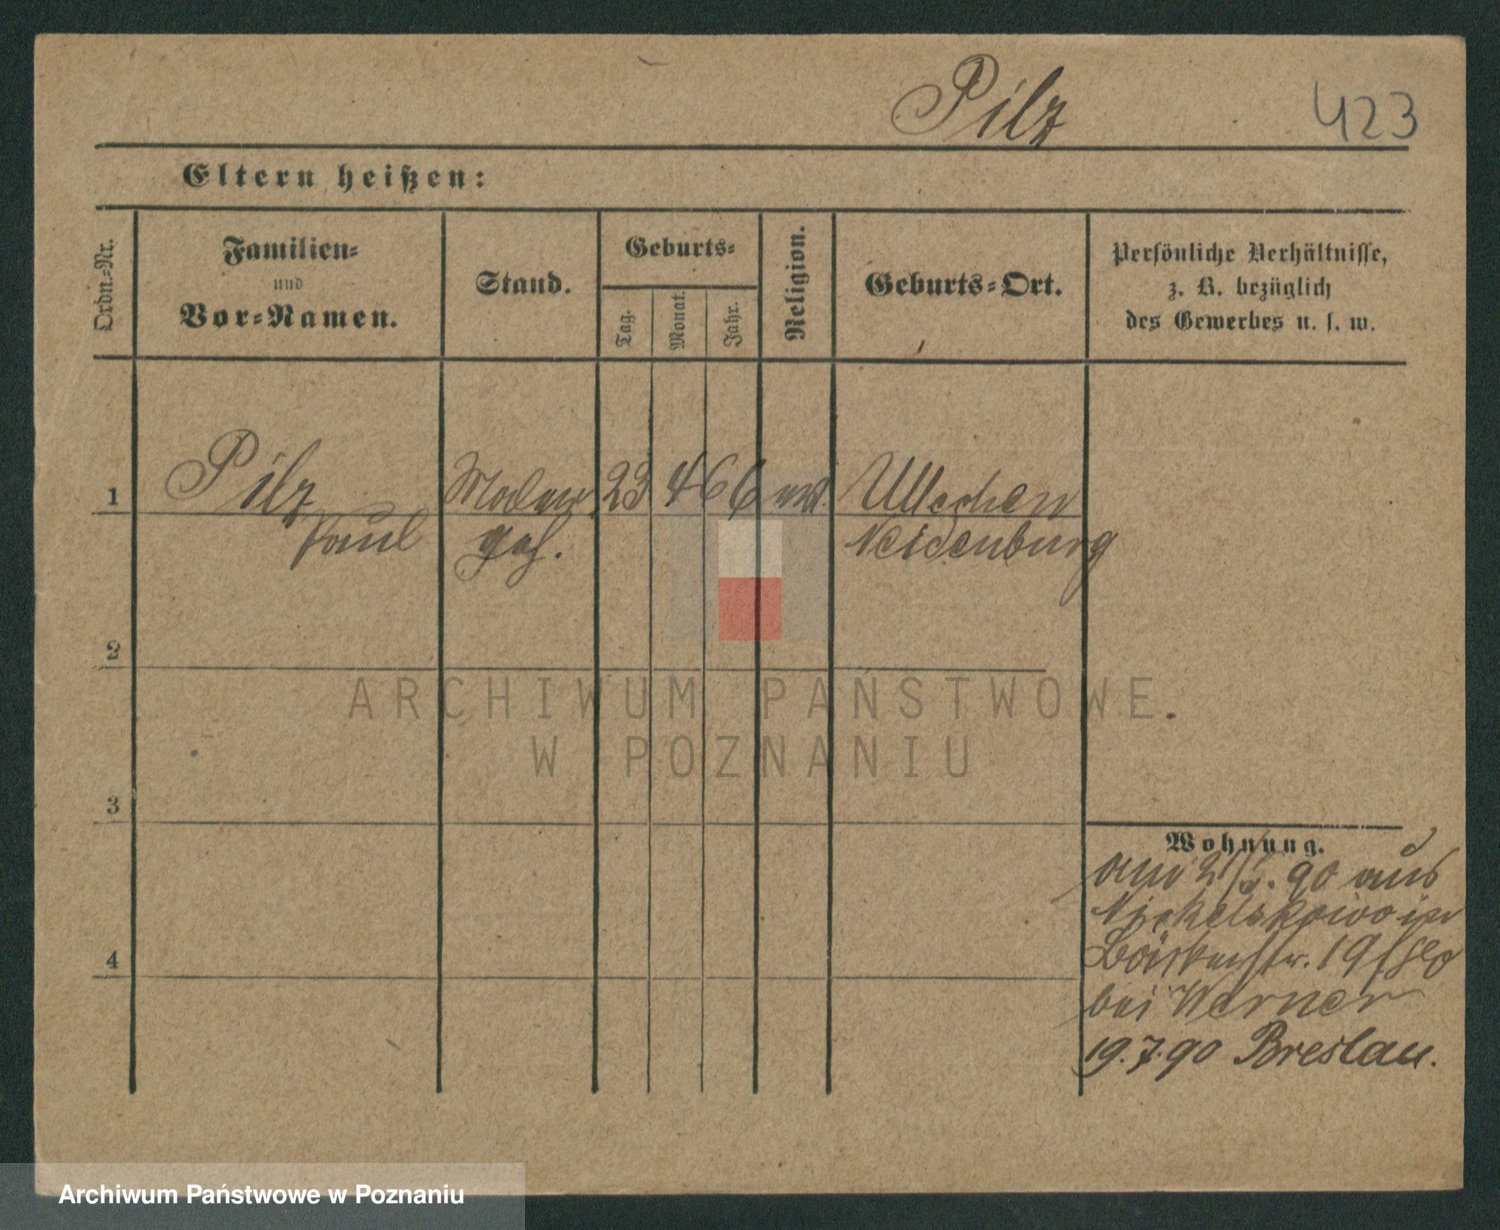 Pilz
423
Eltern heißen:
Ordn.-Nr.
Familien-
und
Vor-Namen.
Stand.
Geburts-
Tag.
Monat.
Jahr.
Religion.
Geburts-Ort.
Persönliche Verhältnisse,
z. B. bezüglich
des Gewerbes u. s. w.
1
Pilz
Paul
Maler
geh.
23
4
66
ev.
Ulleschen
Neidenburg
2
3
4
Wohnung.
am 90 aus
in
19
bei Werner
19.7.90 Breslau.
ARCHIWUM PAŃSTWOWE
W POZNANIU
Archiwum Państwowe w Poznaniu